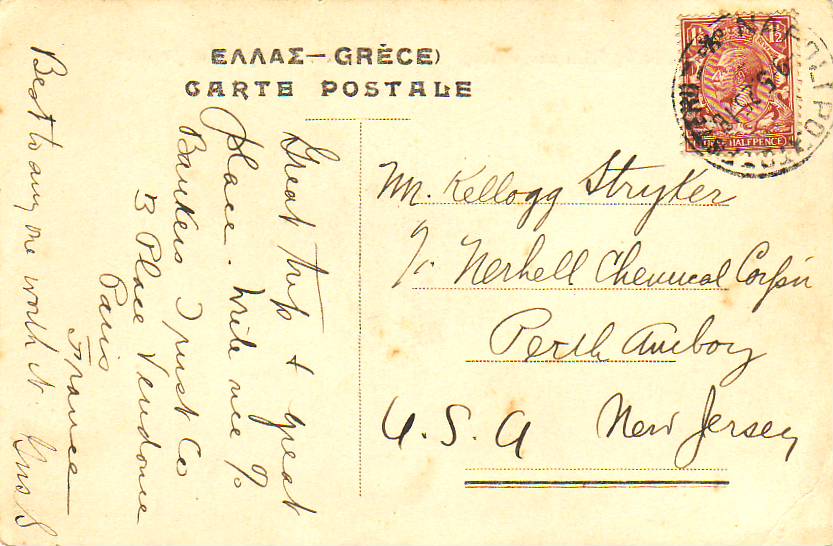 ΕΛΛΑΣ—GRÈCE)
CARTE POSTALE
Great trip & great
place. Write me c/o
Bankers Trust Co
3 Place Vendome
Paris
France
Best to any one worth it. Gus S
Mr. Kellogg Stryker
c/o Nerhell Chemical Corp'n
Perth Amboy
U.S.A New Jersey
HALFPENCE
NAPOLI PO